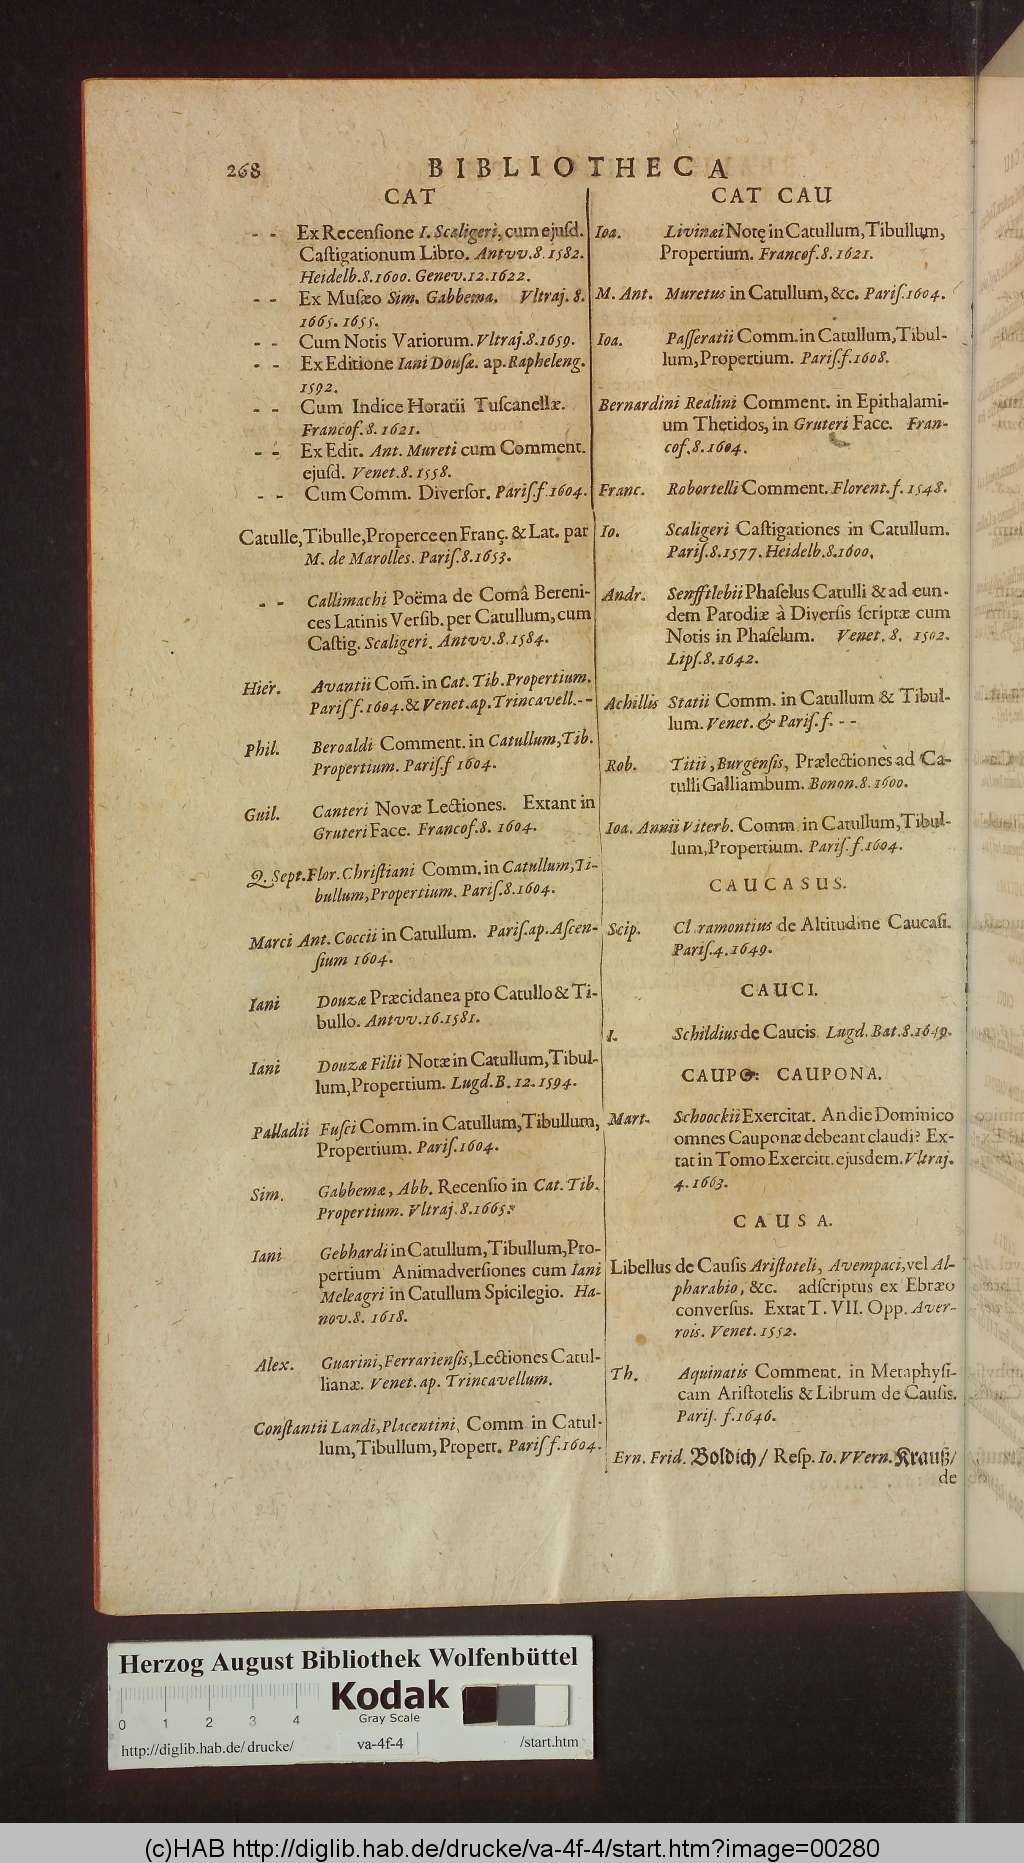 268
BIBLIOTHECA
CAT
-- Ex Recensione I. Scaligeri, cum ejusd.
Castigationum Libro. Antvv. 8. 1582.
Heidelb. 8. 1600. Genev. 12. 1622.
-- Ex Musæo Sim. Gabbema. Vltraj. 8.
1665. 1655.
-- Cum Notis Variorum. Vltraj. 8. 1659.
-- Ex Editione Iani Dousæ. ap. Rapheleng.
1592.
-- Cum Indice Horatii Tuscanellæ.
Francof. 8. 1621.
-- Ex Edit. Ant. Mureti cum Comment.
ejusd. Venet. 8. 1558.
-- Cum Comm. Diversor. Paris. f. 1604.
Catulle, Tibulle, Properce en Franç. & Lat. par
M. de Marolles. Paris. 8. 1653.
-- Callimachi Poëma de Comâ Bereni-
ces Latinis Versib. per Catullum, cum
Castig. Scaligeri. Antvv. 8. 1584.
Hier. Avantii Com̃. in Cat. Tib. Propertium.
Paris f. 1604. & Venet. ap. Trincavell. --
Phil. Beroaldi Comment. in Catullum, Tib.
Propertium. Paris. f 1604.
Guil. Canteri Novæ Lectiones. Extant in
Gruteri Face. Francof. 8. 1604.
Q. Sept. Flor. Christiani Comm. in Catullum, Ti-
bullum, Propertium. Paris. 8. 1604.
Marci Ant. Coccii in Catullum. Paris. ap. Ascen-
sium 1604.
Iani Douzæ Præcidanea pro Catullo & Ti-
bullo. Antvv. 16. 1581.
Iani Douzæ Filii Notæ in Catullum, Tibul-
lum, Propertium. Lugd. B. 12. 1594.
Palladii Fusci Comm. in Catullum, Tibullum,
Propertium. Paris. 1604.
Sim. Gabbemæ, Abb. Recensio in Cat. Tib.
Propertium. Vltraj. 8. 1665.
Iani Gebhardi in Catullum, Tibullum, Pro-
pertium Animadversiones cum Iani
Meleagri in Catullum Spicilegio. Ha-
nov. 8. 1618.
Alex. Guarini, Ferrariensis, Lectiones Catul-
lianæ. Venet. ap. Trincavellum.
Constantii Landi, Placentini, Comm in Catul-
lum, Tibullum, Propert. Paris f. 1604.
CAT CAU
Ioa. Livinæi Notę in Catullum, Tibullum,
Propertium. Francof. 8. 1621.
M. Ant. Muretus in Catullum, &c. Paris. 1604.
Ioa. Passeratii Comm. in Catullum, Tibul-
lum, Propertium. Paris. f. 1608.
Bernardini Realini Comment. in Epithalami-
um Thetidos, in Gruteri Face. Fran-
cof. 8. 1604.
Franc. Robortelli Comment. Florent. f. 1548.
Io. Scaligeri Castigationes in Catullum.
Paris. 8. 1577. Heidelb. 8. 1600.
Andr. Senfftlebii Phaselus Catulli & ad eun-
dem Parodiæ à Diversis scriptæ cum
Notis in Phaselum. Venet. 8. 1502.
Lips. 8. 1642.
Achillis Statii Comm. in Catullum & Tibul-
lum. Venet. & Paris. f. --
Rob. Titii, Burgensis, Prælectiones ad Ca-
tulli Galliambum. Bonon. 8. 1600.
Ioa. Annii Viterb. Comm. in Catullum, Tibul-
lum, Propertium. Paris. f. 1604.
CAUCASUS.
Scip. Cl ramontius de Altitudine Caucasi.
Paris. 4. 1649.
CAUCI.
I. Schildius de Caucis. Lugd. Bat. 8. 1649.
CAUPO: CAUPONA.
Mart. Schoockii Exercitat. An die Dominico
omnes Cauponæ debeant claudi? Ex-
tat in Tomo Exercitt. ejusdem. Vltraj.
4. 1663.
CAUSA.
Libellus de Causis Aristoteli, Avempaci, vel Al-
pharabio, &c. adscriptus ex Ebræo
conversus. Extat T. VII. Opp. Aver-
rois. Venet. 1552.
Th. Aquinatis Comment. in Metaphysi-
cam Aristotelis & Librum de Causis.
Paris. f. 1646.
Ern. Frid. Boldich / Resp. Io. VVern. Krauß /
de
Herzog August Bibliothek Wolfenbüttel
Kodak
Gray Scale
0 1 2 3 4
http://diglib.hab.de/drucke/ va-4f-4 /start.htm
(c)HAB http://diglib.hab.de/drucke/va-4f-4/start.htm?image=00280